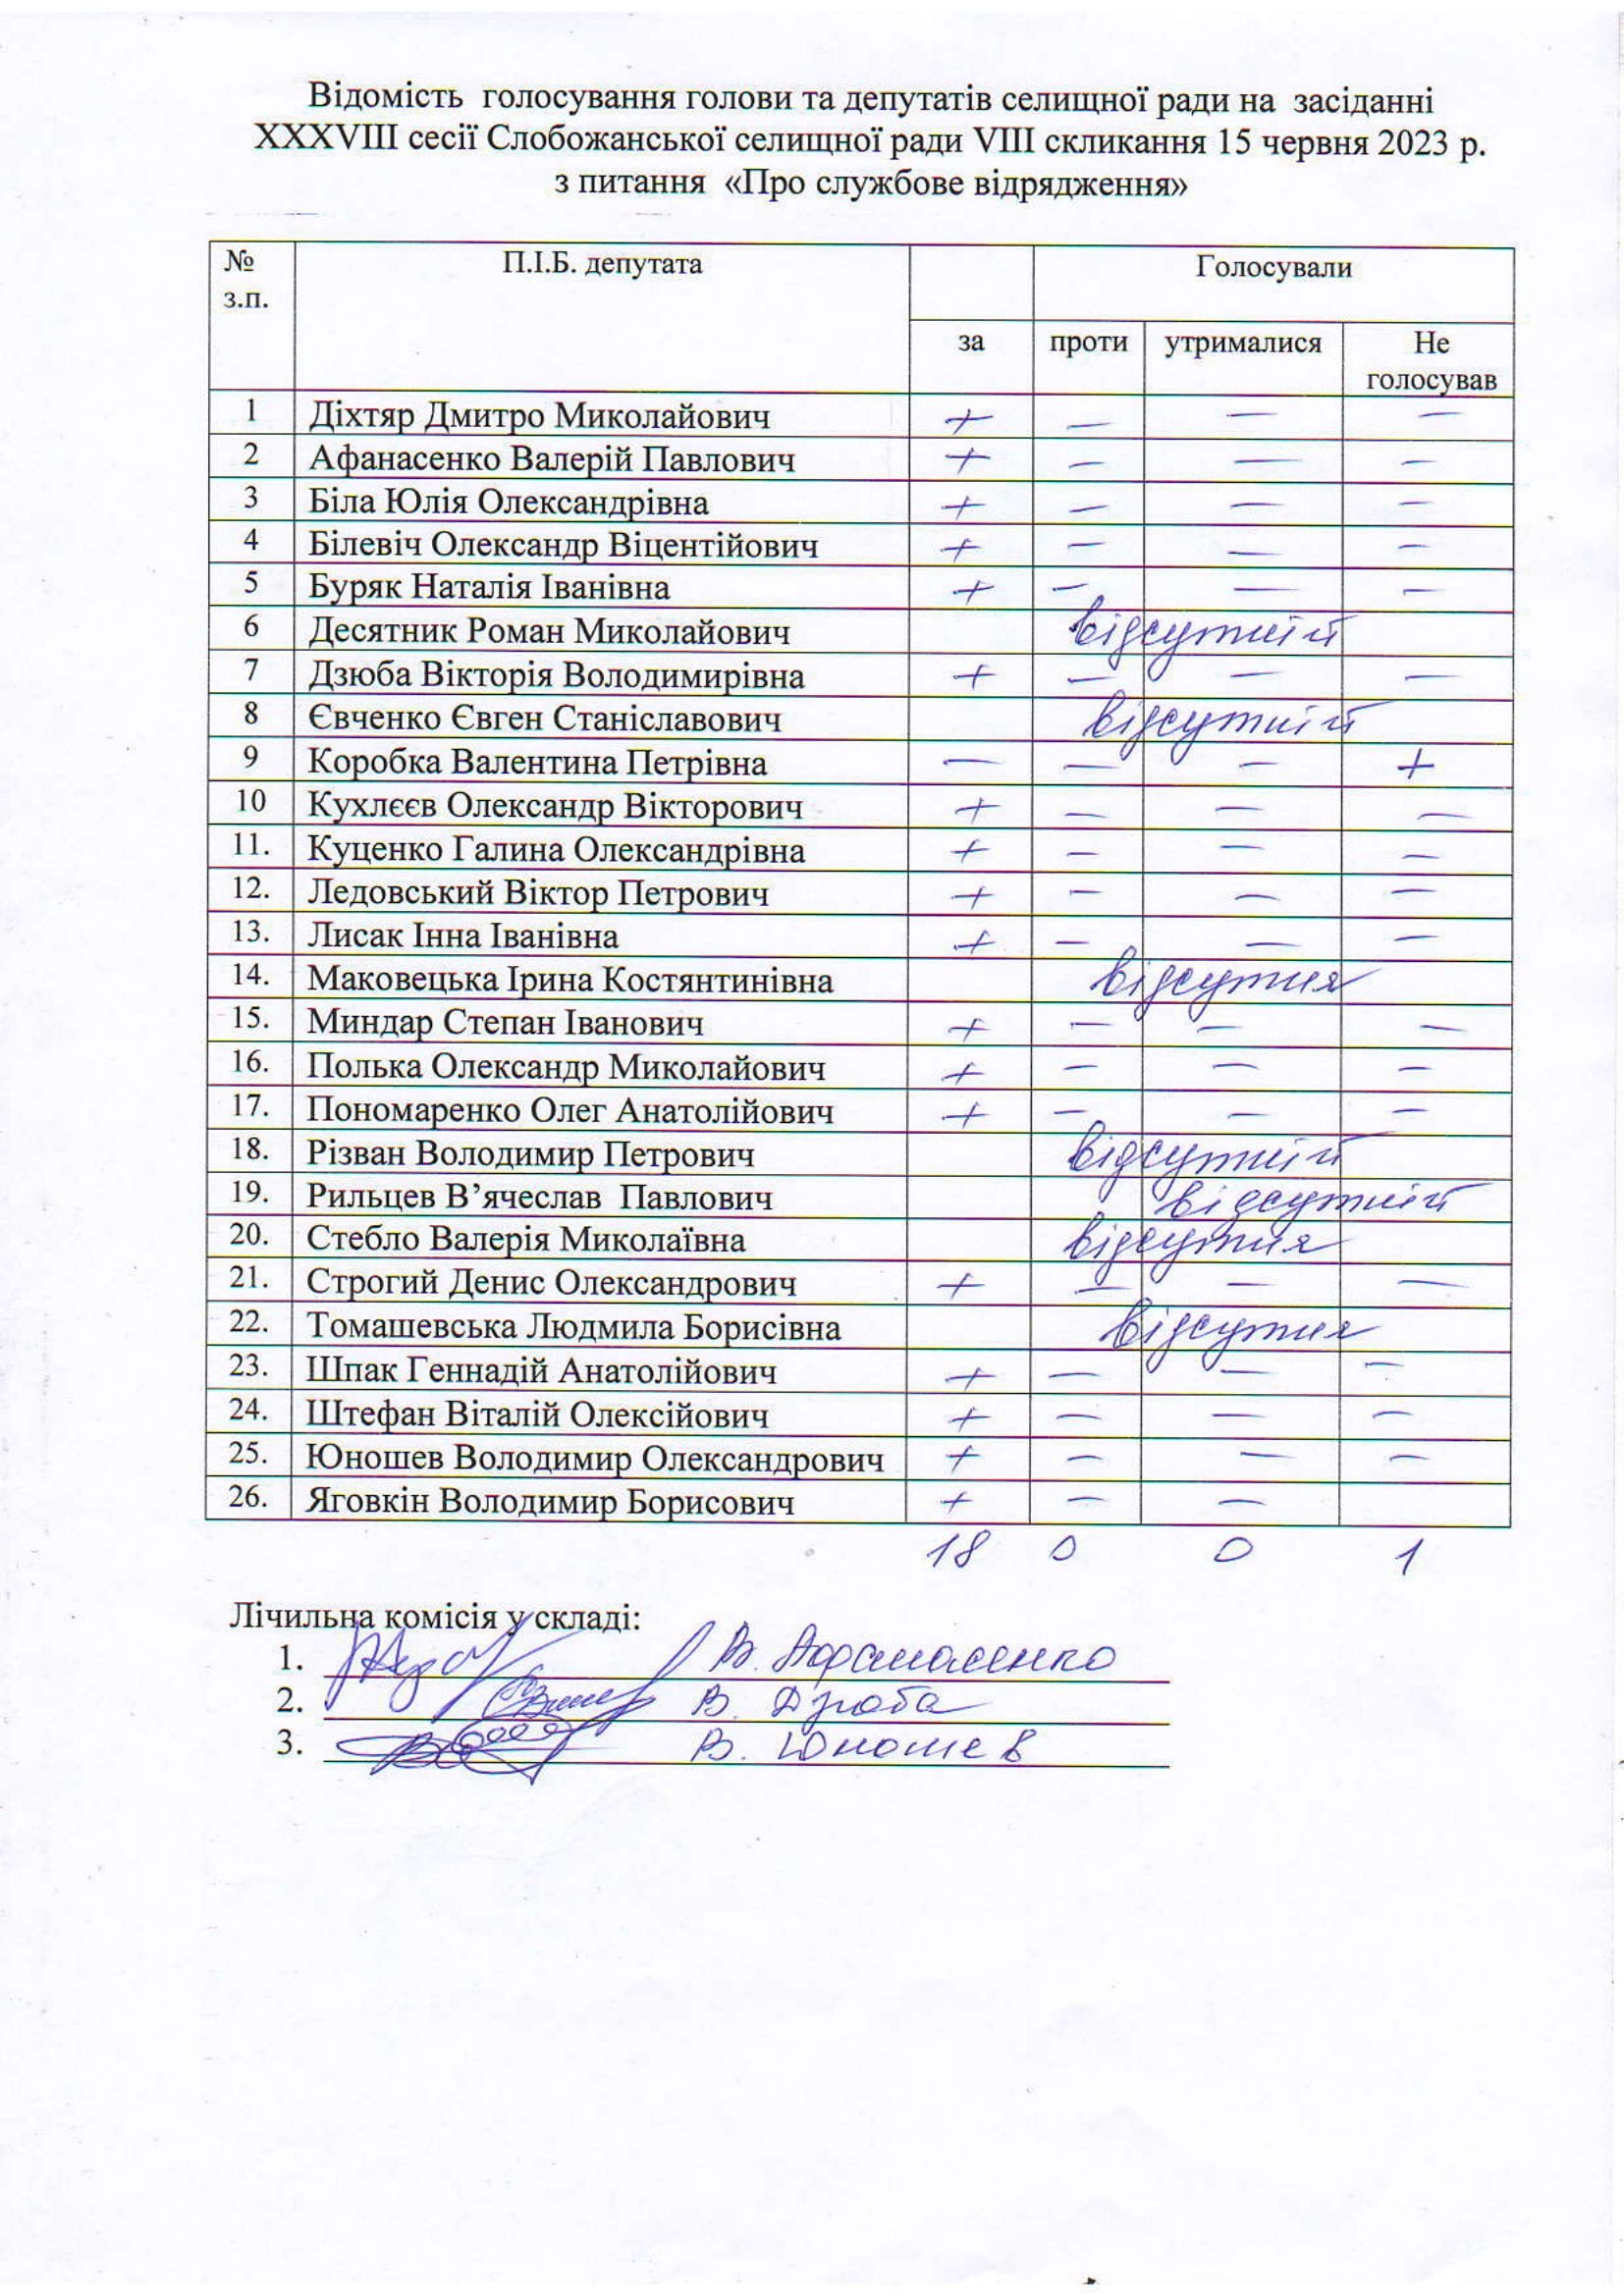 Відомість голосування голови та депутатів селищної ради на засіданні
XXXVIII сесії Слобожанської селищної ради VIII скликання 15 червня 2023 р.
з питання «Про службове відрядження»
№ з.п. П.І.Б. депутата Голосували
за проти утрималися Не голосував
1 Діхтяр Дмитро Миколайович + — — —
2 Афанасенко Валерій Павлович + — — —
3 Біла Юлія Олександрівна + — — —
4 Білевіч Олександр Віцентійович + — — —
5 Буряк Наталія Іванівна + — — —
6 Десятник Роман Миколайович відсутній
7 Дзюба Вікторія Володимирівна + — — —
8 Євченко Євген Станіславович відсутній
9 Коробка Валентина Петрівна — — — +
10 Кухлєєв Олександр Вікторович + — — —
11. Куценко Галина Олександрівна + — — —
12. Ледовський Віктор Петрович + — — —
13. Лисак Інна Іванівна + — — —
14. Маковецька Ірина Костянтинівна відсутня
15. Миндар Степан Іванович + — — —
16. Полька Олександр Миколайович + — — —
17. Пономаренко Олег Анатолійович + — — —
18. Різван Володимир Петрович відсутній
19. Рильцев В’ячеслав Павлович відсутній
20. Стебло Валерія Миколаївна відсутня
21. Строгий Денис Олександрович + — — —
22. Томашевська Людмила Борисівна відсутня
23. Шпак Геннадій Анатолійович + — — —
24. Штефан Віталій Олексійович + — — —
25. Юношев Володимир Олександрович + — — —
26. Яговкін Володимир Борисович + — —
18 0 0 1
Лічильна комісія у складі:
1. В. Афанасенко
2. В. Дзюба
3. В. Юношев